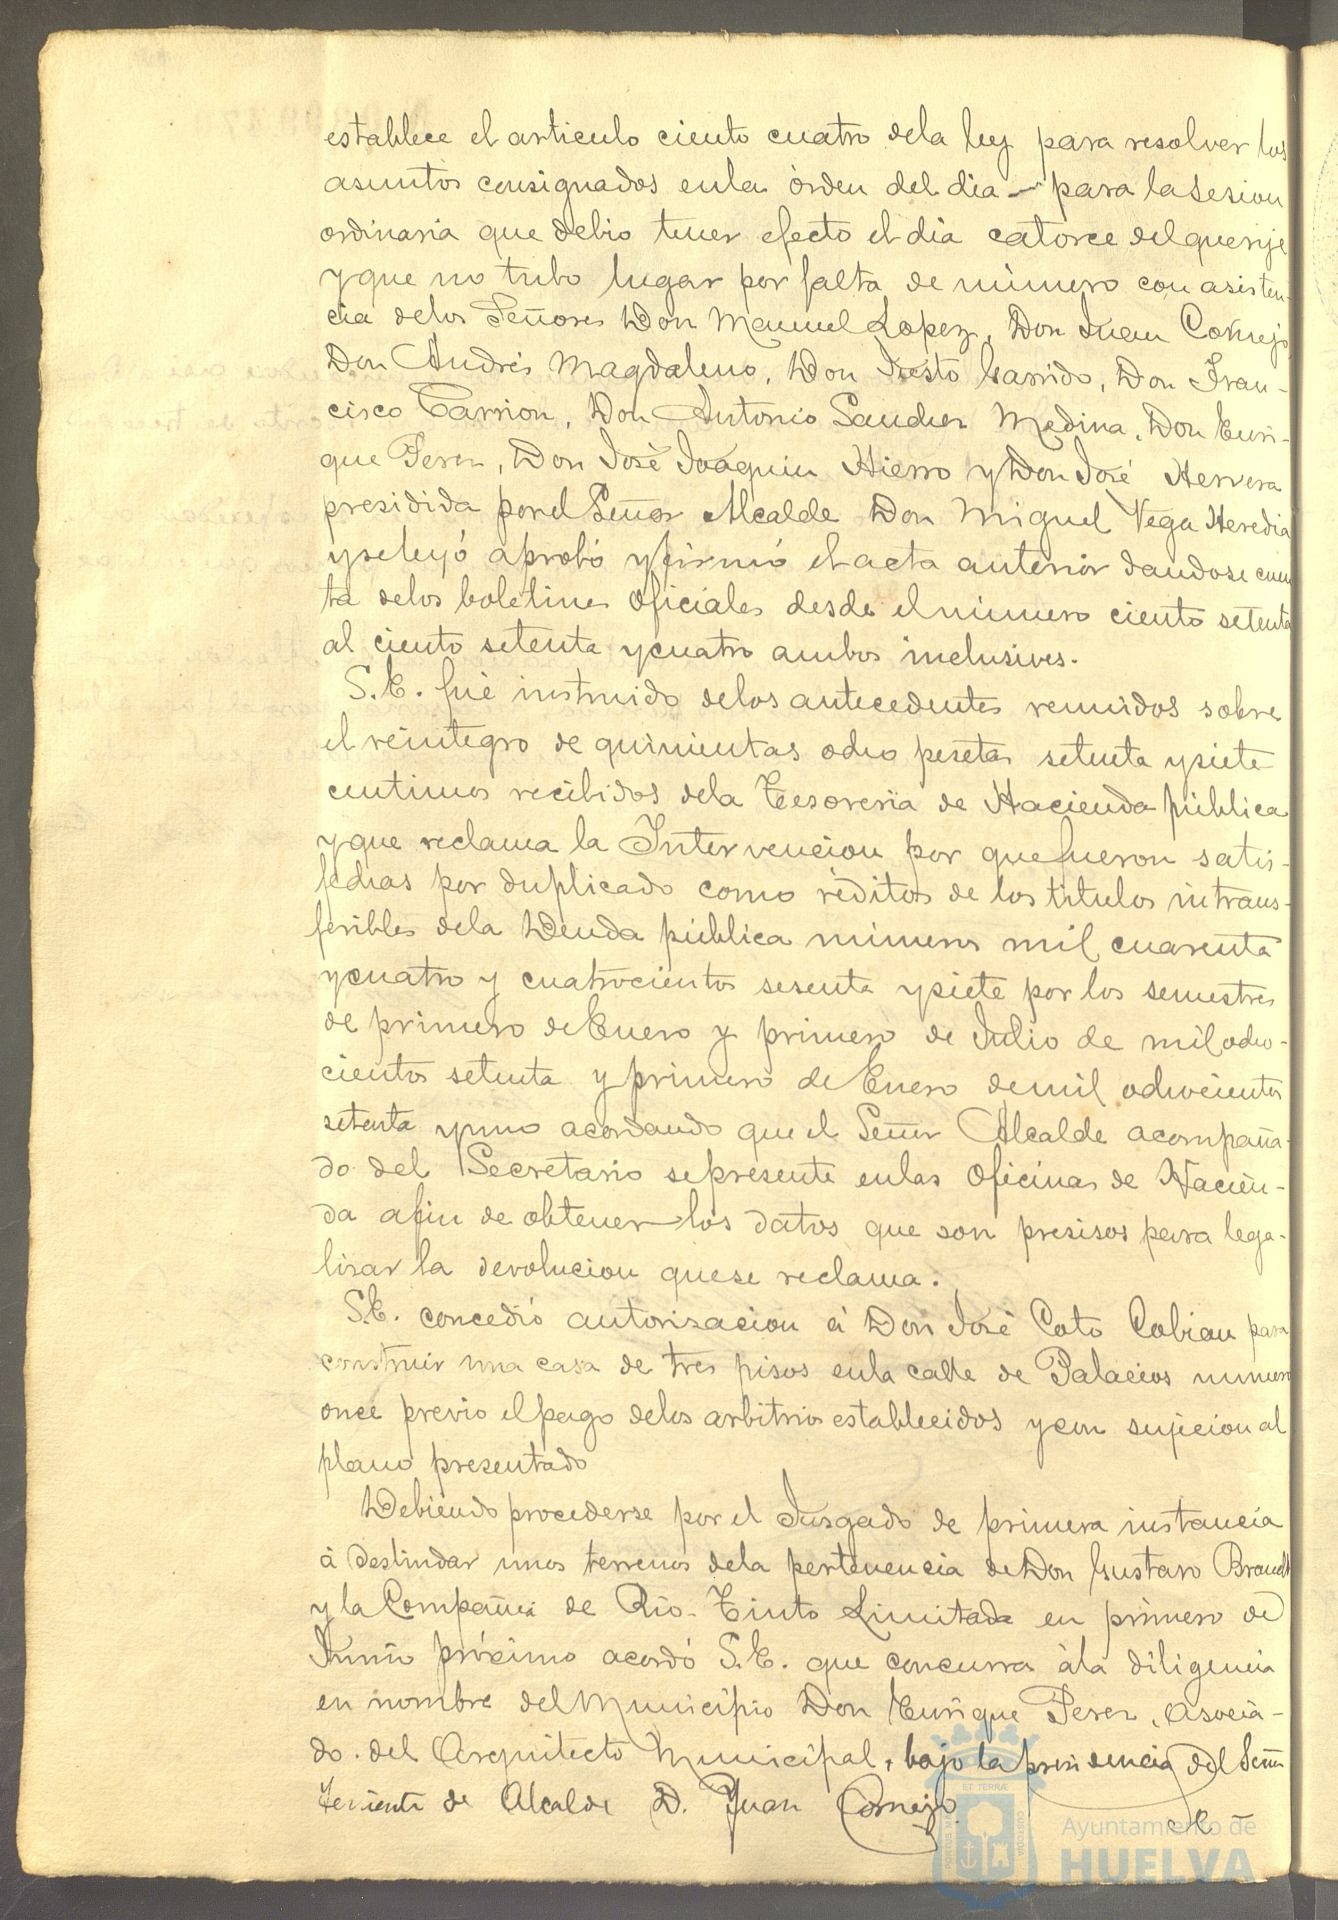 establece el articulo ciento cuatro dela ley para resolver los
asuntos consignados enla órden del dia para la Sesion
ordinaria que debio tener efecto el dia catorce del que rije
y que no tubo lugar por falta de número con asisten-
cia delos Señores Don Manuel Lopez, Don Juan Cornejo,
Don Andrés Magdaleno, Don Justo Garrido, Don Fran-
cisco Carrion, Don Antonio Sanchez Medina, Don Enri-
que Perez, Don José Joaquin Hierro y Don José Herrera
presidida por el Señor Alcalde Don Miguel Vega Heredia
y se leyó aprobó y firmó el acta anterior dandose cuen
ta delos boletines Oficiales desde el número ciento setenta
al ciento setenta y cuatro ambos inclusives.
S.E. fué instruido delos antecedentes reunidos sobre
el reintegro de quinientas ocho pesetas setenta y siete
centimos recibidos dela Tesoreria de Hacienda pública
y que reclama la Intervencion por que fueron satis-
fechas por duplicado como réditos de los titulos intrans-
feribles dela Deuda pública números mil cuarenta
y cuatro y cuatrocientos sesenta y siete por los semestres
de primero de Enero y primero de Julio de mil ocho-
cientos setenta y primero de Enero de mil ochocientos
setenta y uno acordando que el Señor Alcalde acompaña-
do del Secretario se presente enlas Oficinas de Hacien-
da afin de obtener los datos que son presisos para lega-
lizar la devolucion que se reclama.
S.E. concedió autorizacion á Don José Coto Cobian para
construir una casa de tres pisos enla calle de Palacios numero
once previo el pago delos arbitrios establecidos y con sujecion al
plano presentado
Debiendo procederse por el Jusgado de primera instancia
á deslindar unos terrenos dela pertenencia de Don Gustavo Brandt
y la Compañia de Rio-Tinto Limitada en primero de
Junio próximo acordó S.E. que concurra á la diligencia
en nombre del Municipio Don Enrique Perez, Asocia-
do del Arquitecto Municipal, bajo la presidencia del Señor
Teniente de Alcalde D. Juan Cornejo
Ayuntamiento de
HUELVA